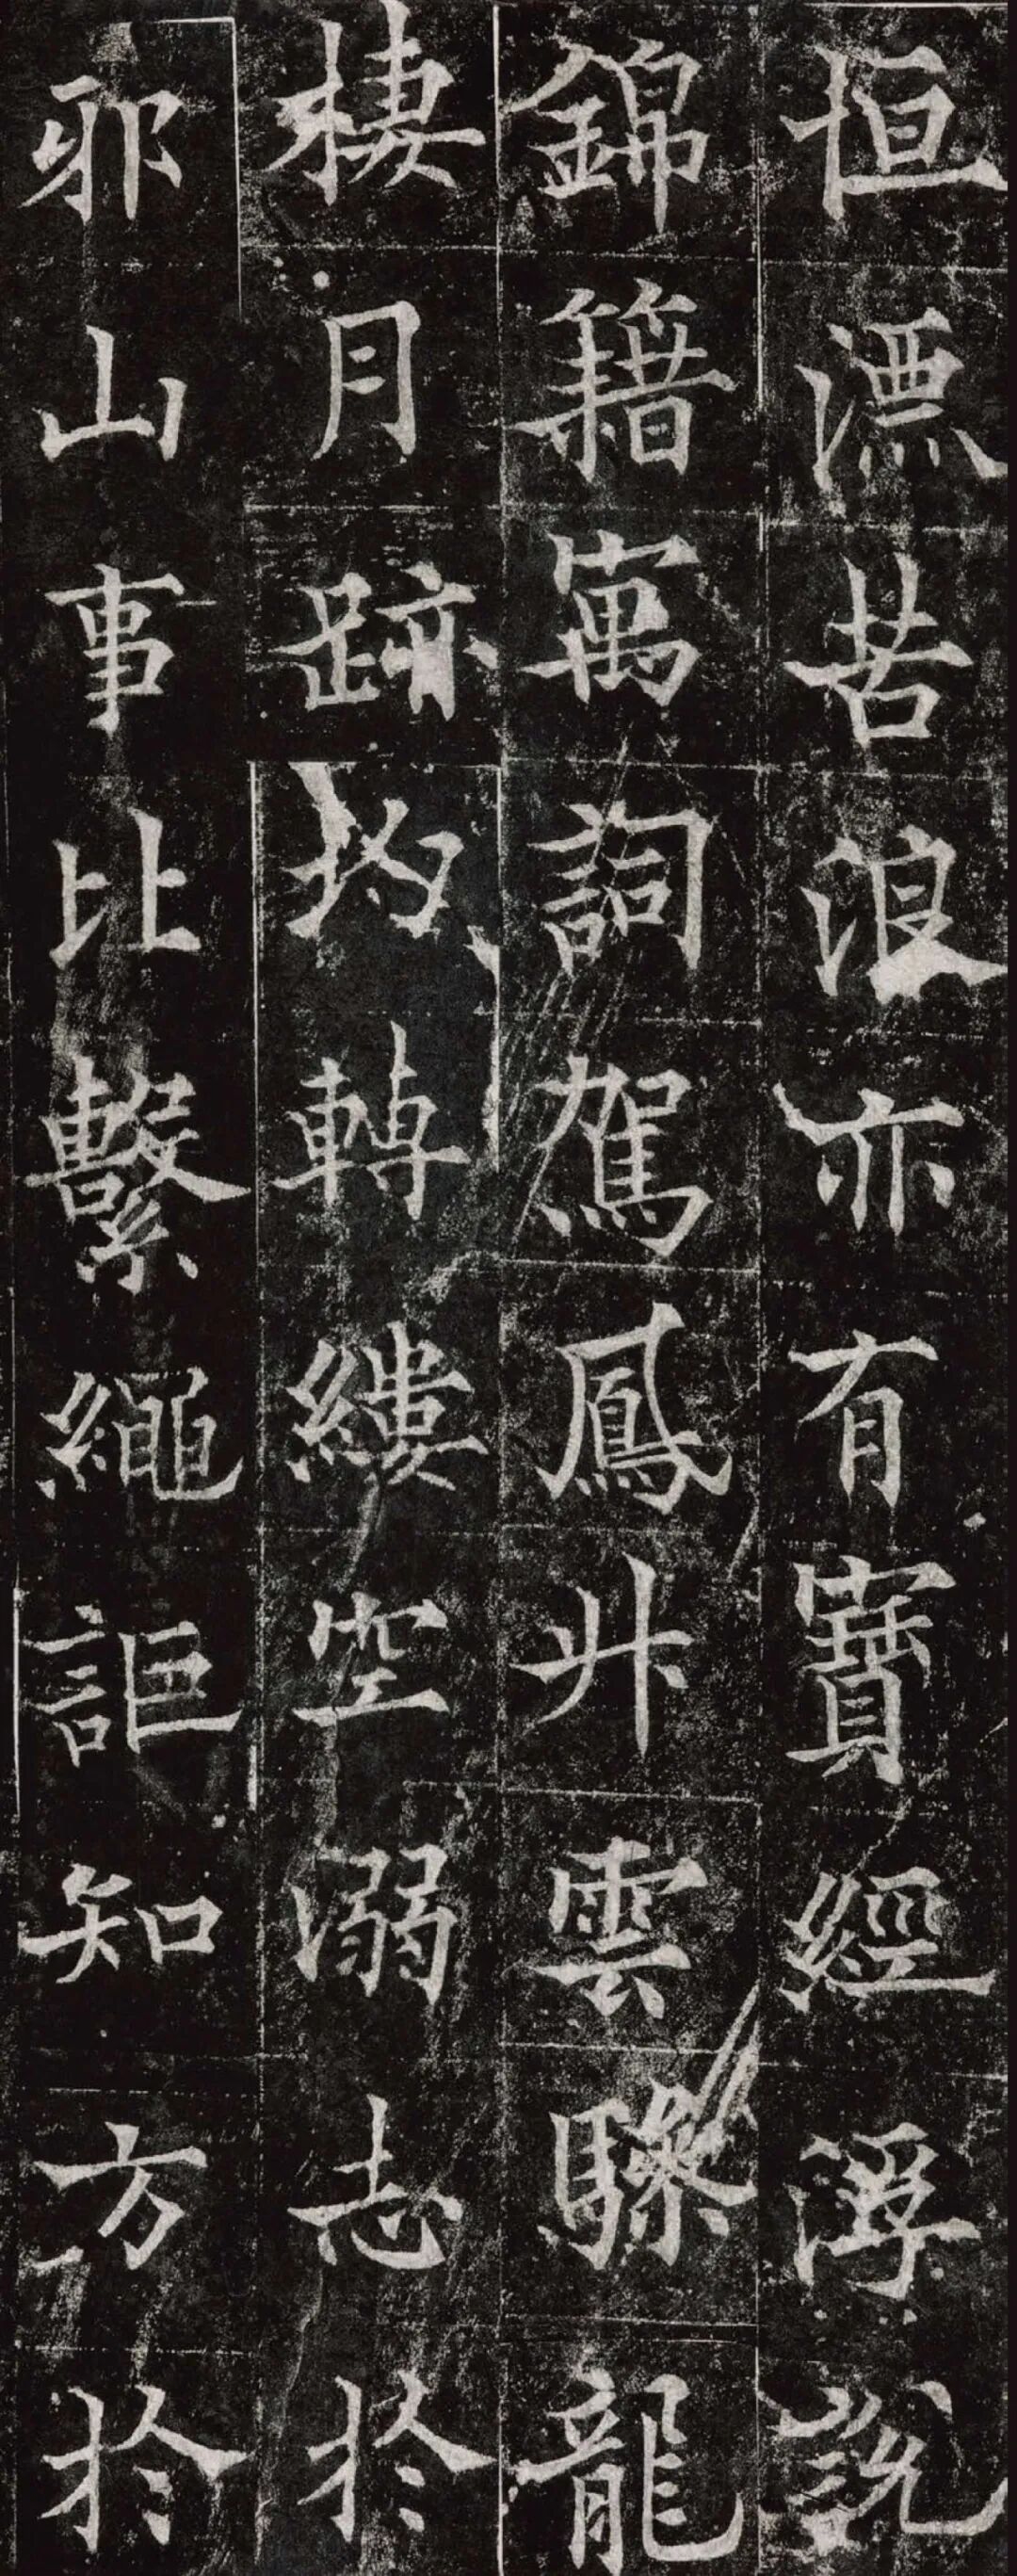 恒漂苦浪亦有寶經浮說
錦籍萬詞駕鳳升雲驂龍
棲月跡均轉縷空溺志於
邪山事比繫繩詎知方於